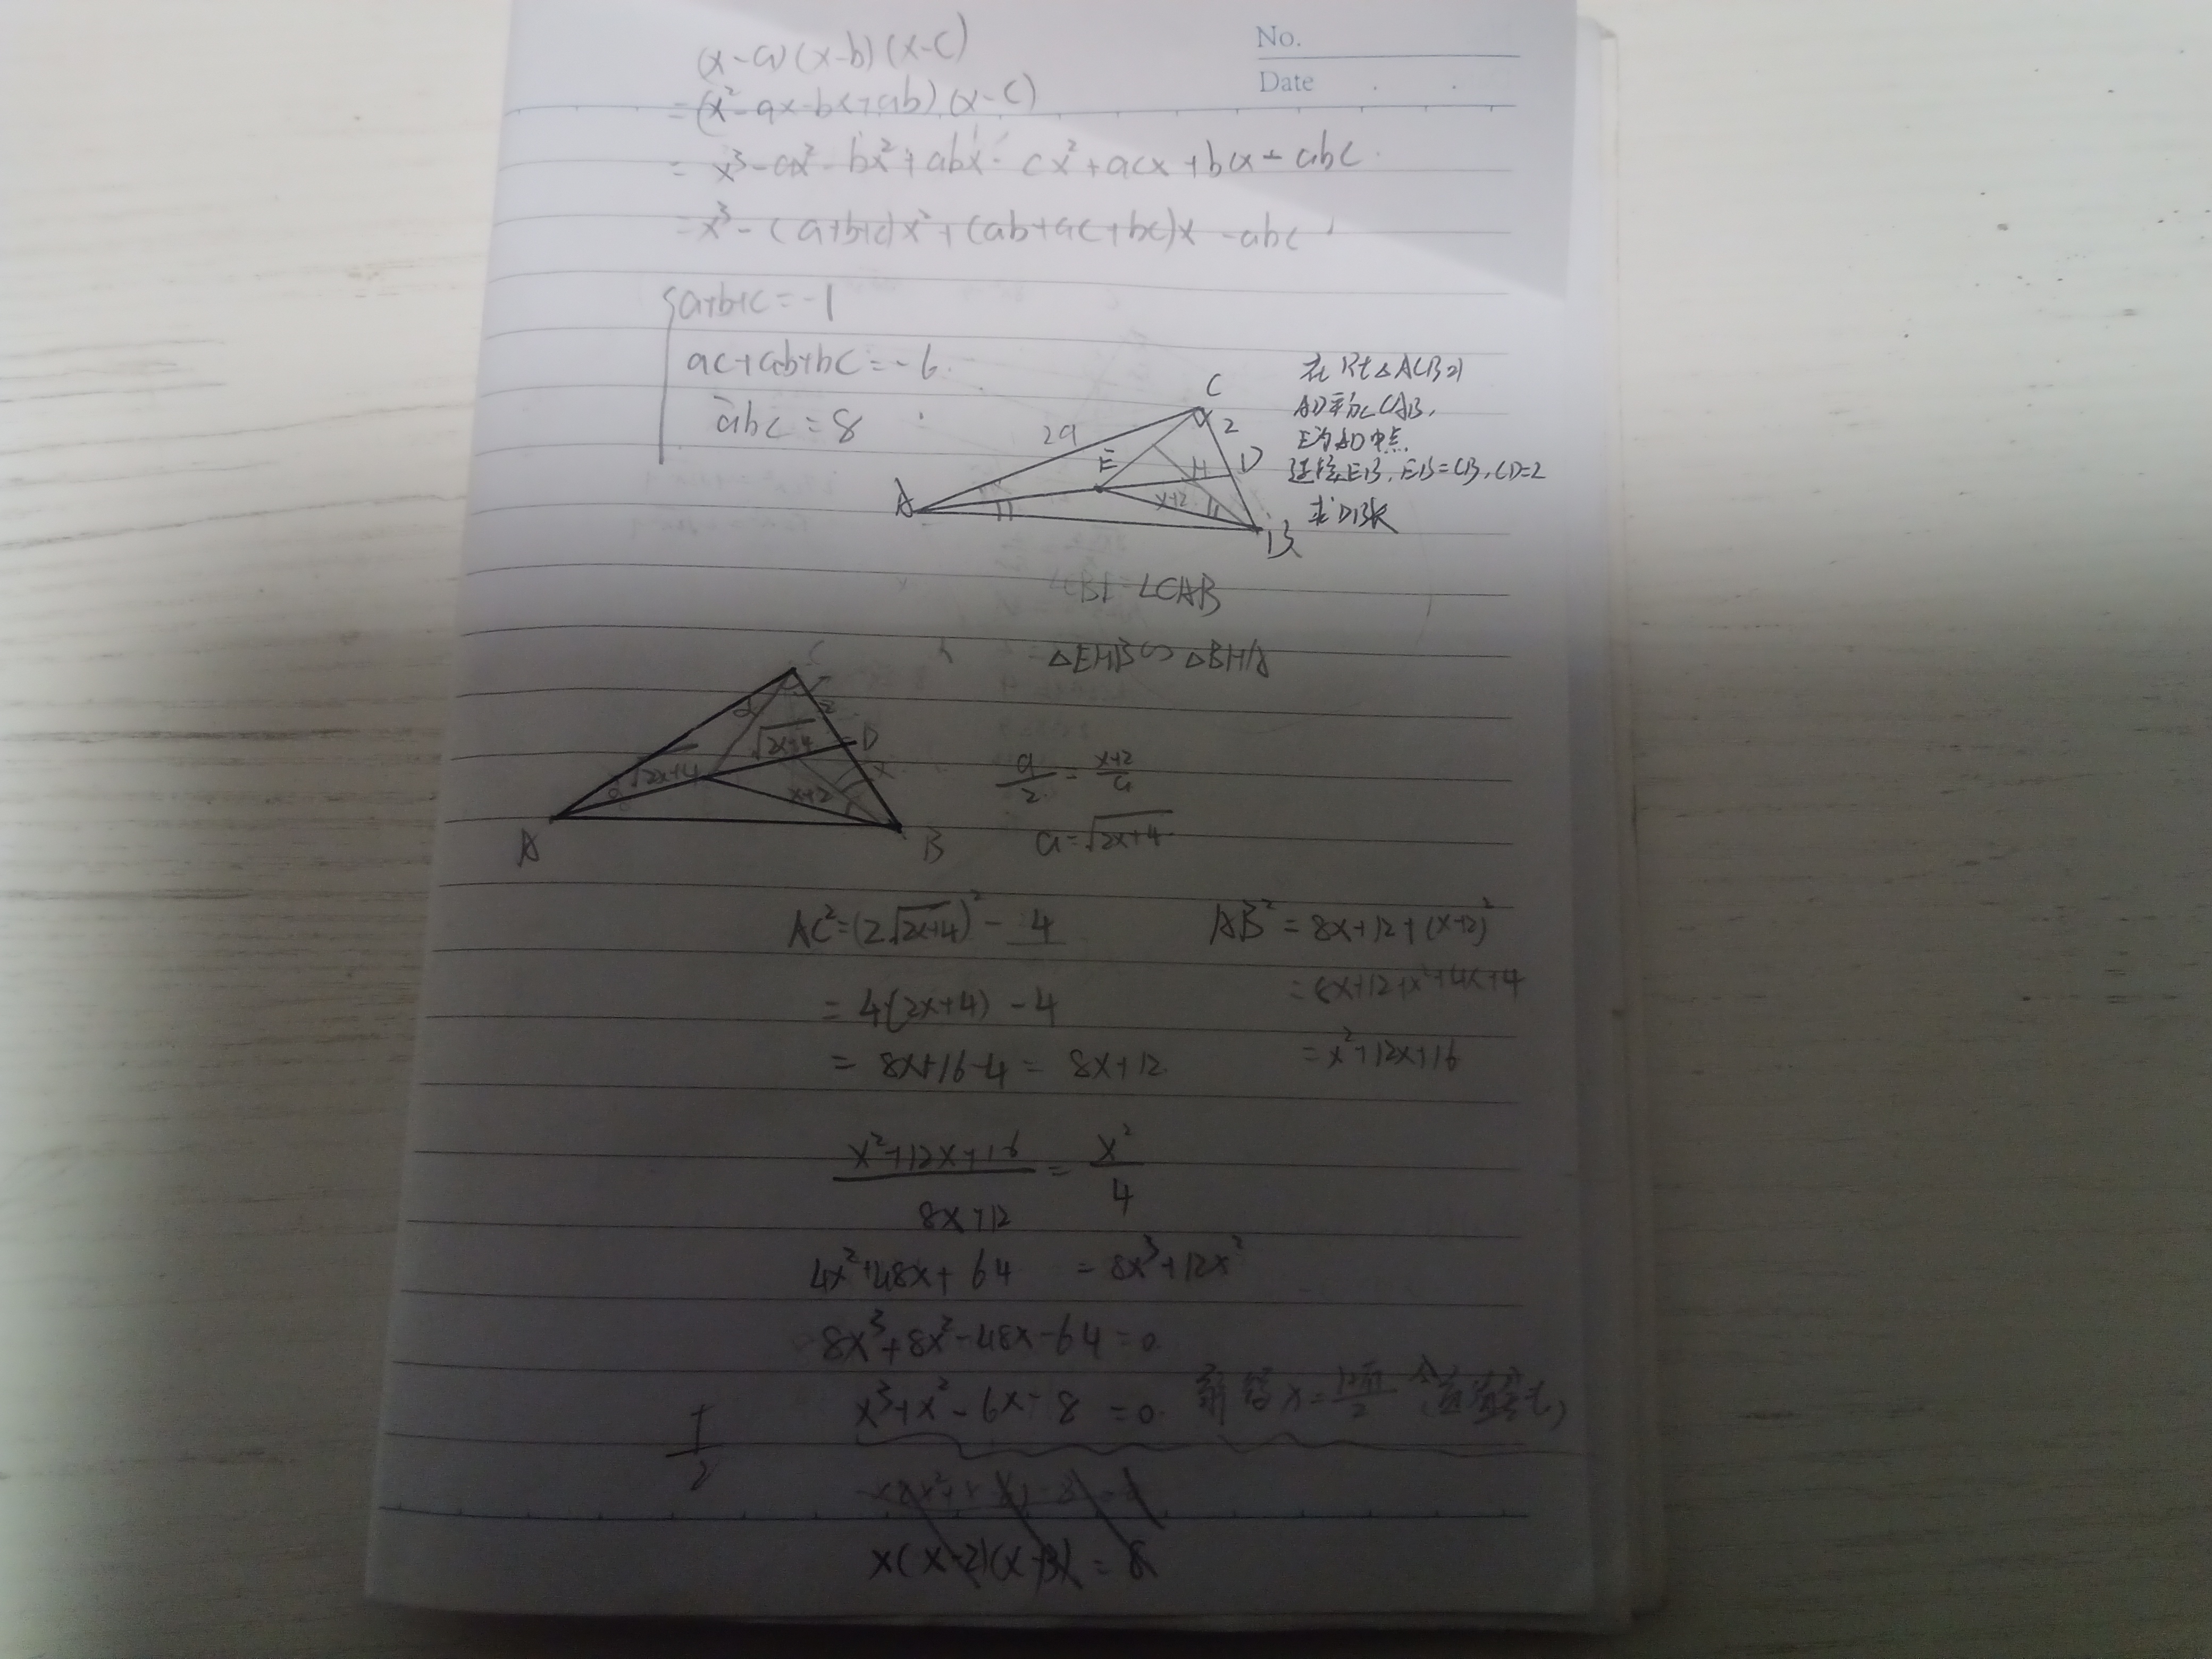 No.
Date
(x-a)(x-b)(x-c)
=(x²-ax-bx+ab)(x-c)
= x³-ax²-bx²+abx-cx²+acx+bcx-abc
=x³-(a+b+c)x²+(ab+ac+bc)x-abc
a+b+c=-1
ac+ab+bc=-6
abc=8
在Rt△ACB中
AD平分∠CAB,
E为AD中点
连接EB,EB=CB,CD=2
求DB长
C
2
2a
E
H
D
A
x+2
B
=∠CAB
△EHB∽△BHA
C
2
√2x+4
D
α
√2x+4
x
α
x+2
A
B
a/2=x+2/a
a=√2x+4
AC²=(2√2x+4)²-4
=4(2x+4)-4
=8x+16-4=8x+12
AB²=8x+12+(x+2)²
=8x+12+x²+4x+4
=x²+12x+16
x²+12x+16/8x+12=x²/4
4x²+48x+64=8x³+12x²
8x³+8x²-48x-64=0
x³+x²-6x-8=0
x(x-2)(x+3)=8